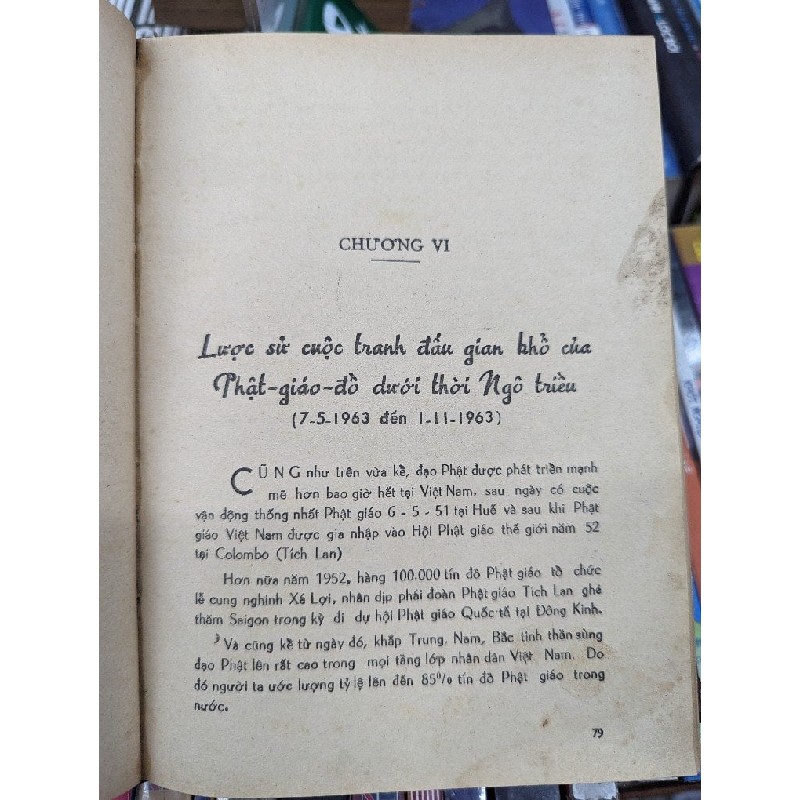 CHƯƠNG VI
Lược sử cuộc tranh đấu gian khổ của
Phật-giáo-đồ dưới thời Ngô triều
(7-5-1963 đến 1-11-1963)
CŨNG như trên vừa kể, đạo Phật được phát triển mạnh
mẽ hơn bao giờ hết tại Việt Nam, sau ngày có cuộc
vận động thống nhất Phật giáo 6 - 5 - 51 tại Huế và sau khi Phật
giáo Việt Nam được gia nhập vào Hội Phật giáo thế giới năm 52
tại Colombo (Tích Lan)
Hơn nữa năm 1952, hàng 100.000 tín đồ Phật giáo tổ chức
lễ cung nghinh Xá Lợi, nhân dịp phái đoàn Phật giáo Tích Lan ghé
thăm Saigon trong kỳ đi dự hội Phật giáo Quốc tế tại Đông Kinh.
Và cũng kể từ ngày đó, khắp Trung, Nam, Bắc tinh thần sùng
đạo Phật lên rất cao trong mọi tầng lớp nhân dân Việt Nam. Do
đó người ta ước lượng tỷ lệ lên đến 85% tín đồ Phật giáo trong
nước.
79